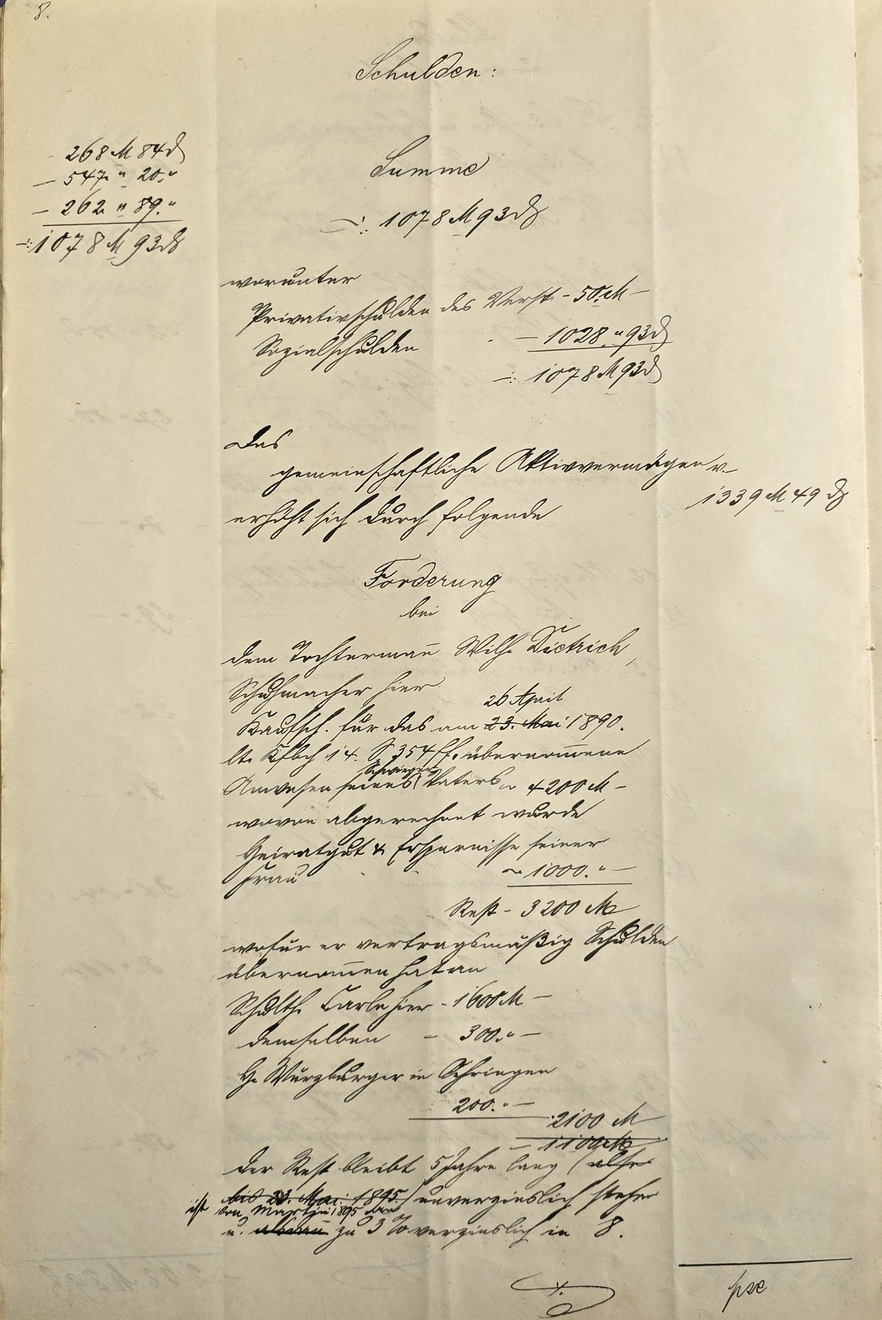 8.
Schulden:
268 M 84 d
- 547 " 20 "
- 262 " 89. "
-: 1078 M 93 d
Summe
-: 1078 M 93 d
worunter
Privativschulden des Verst. - 50 M -
Sozialschulden - 1028. " 93 d
-: 1078 M 93 d
Das
gemeinschaftliche Aktivvermögen v.
1339 M 49 d
erhöht sich durch folgende
Forderung
bei
dem Tochtermann Wilh. Dietrich,
Schuhmacher hier
26 April
Kaufsch. für das am 23. Mai 1890.
lt. Kfbch 14. S. 354 ff. übernommene
Schwieger
Anwesen seines Vaters 4200 M -
wovon abgerechnet wurde
Heiratgut & Ersparnisse seiner
Frau 1000. " -
Rest - 3200 M
wofür er vertragsmäßig Schulden
übernommen hat an
Schulth. Carle hier - 1600 M -
demselben - 300. " -
H. Würzburger in Öhringen
200. " -
2100 M
- 1100 M
der Rest bleibt 5 Jahre lang (also
bis 23. Mai 1895.) unverzinslich stehen
ist von Martini 1895 an
u. alsdann zu 3 % verzinslich in 8.
pse